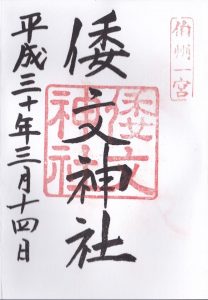 伯州一宮
倭文神社
倭文神社
平成三十年三月十四日